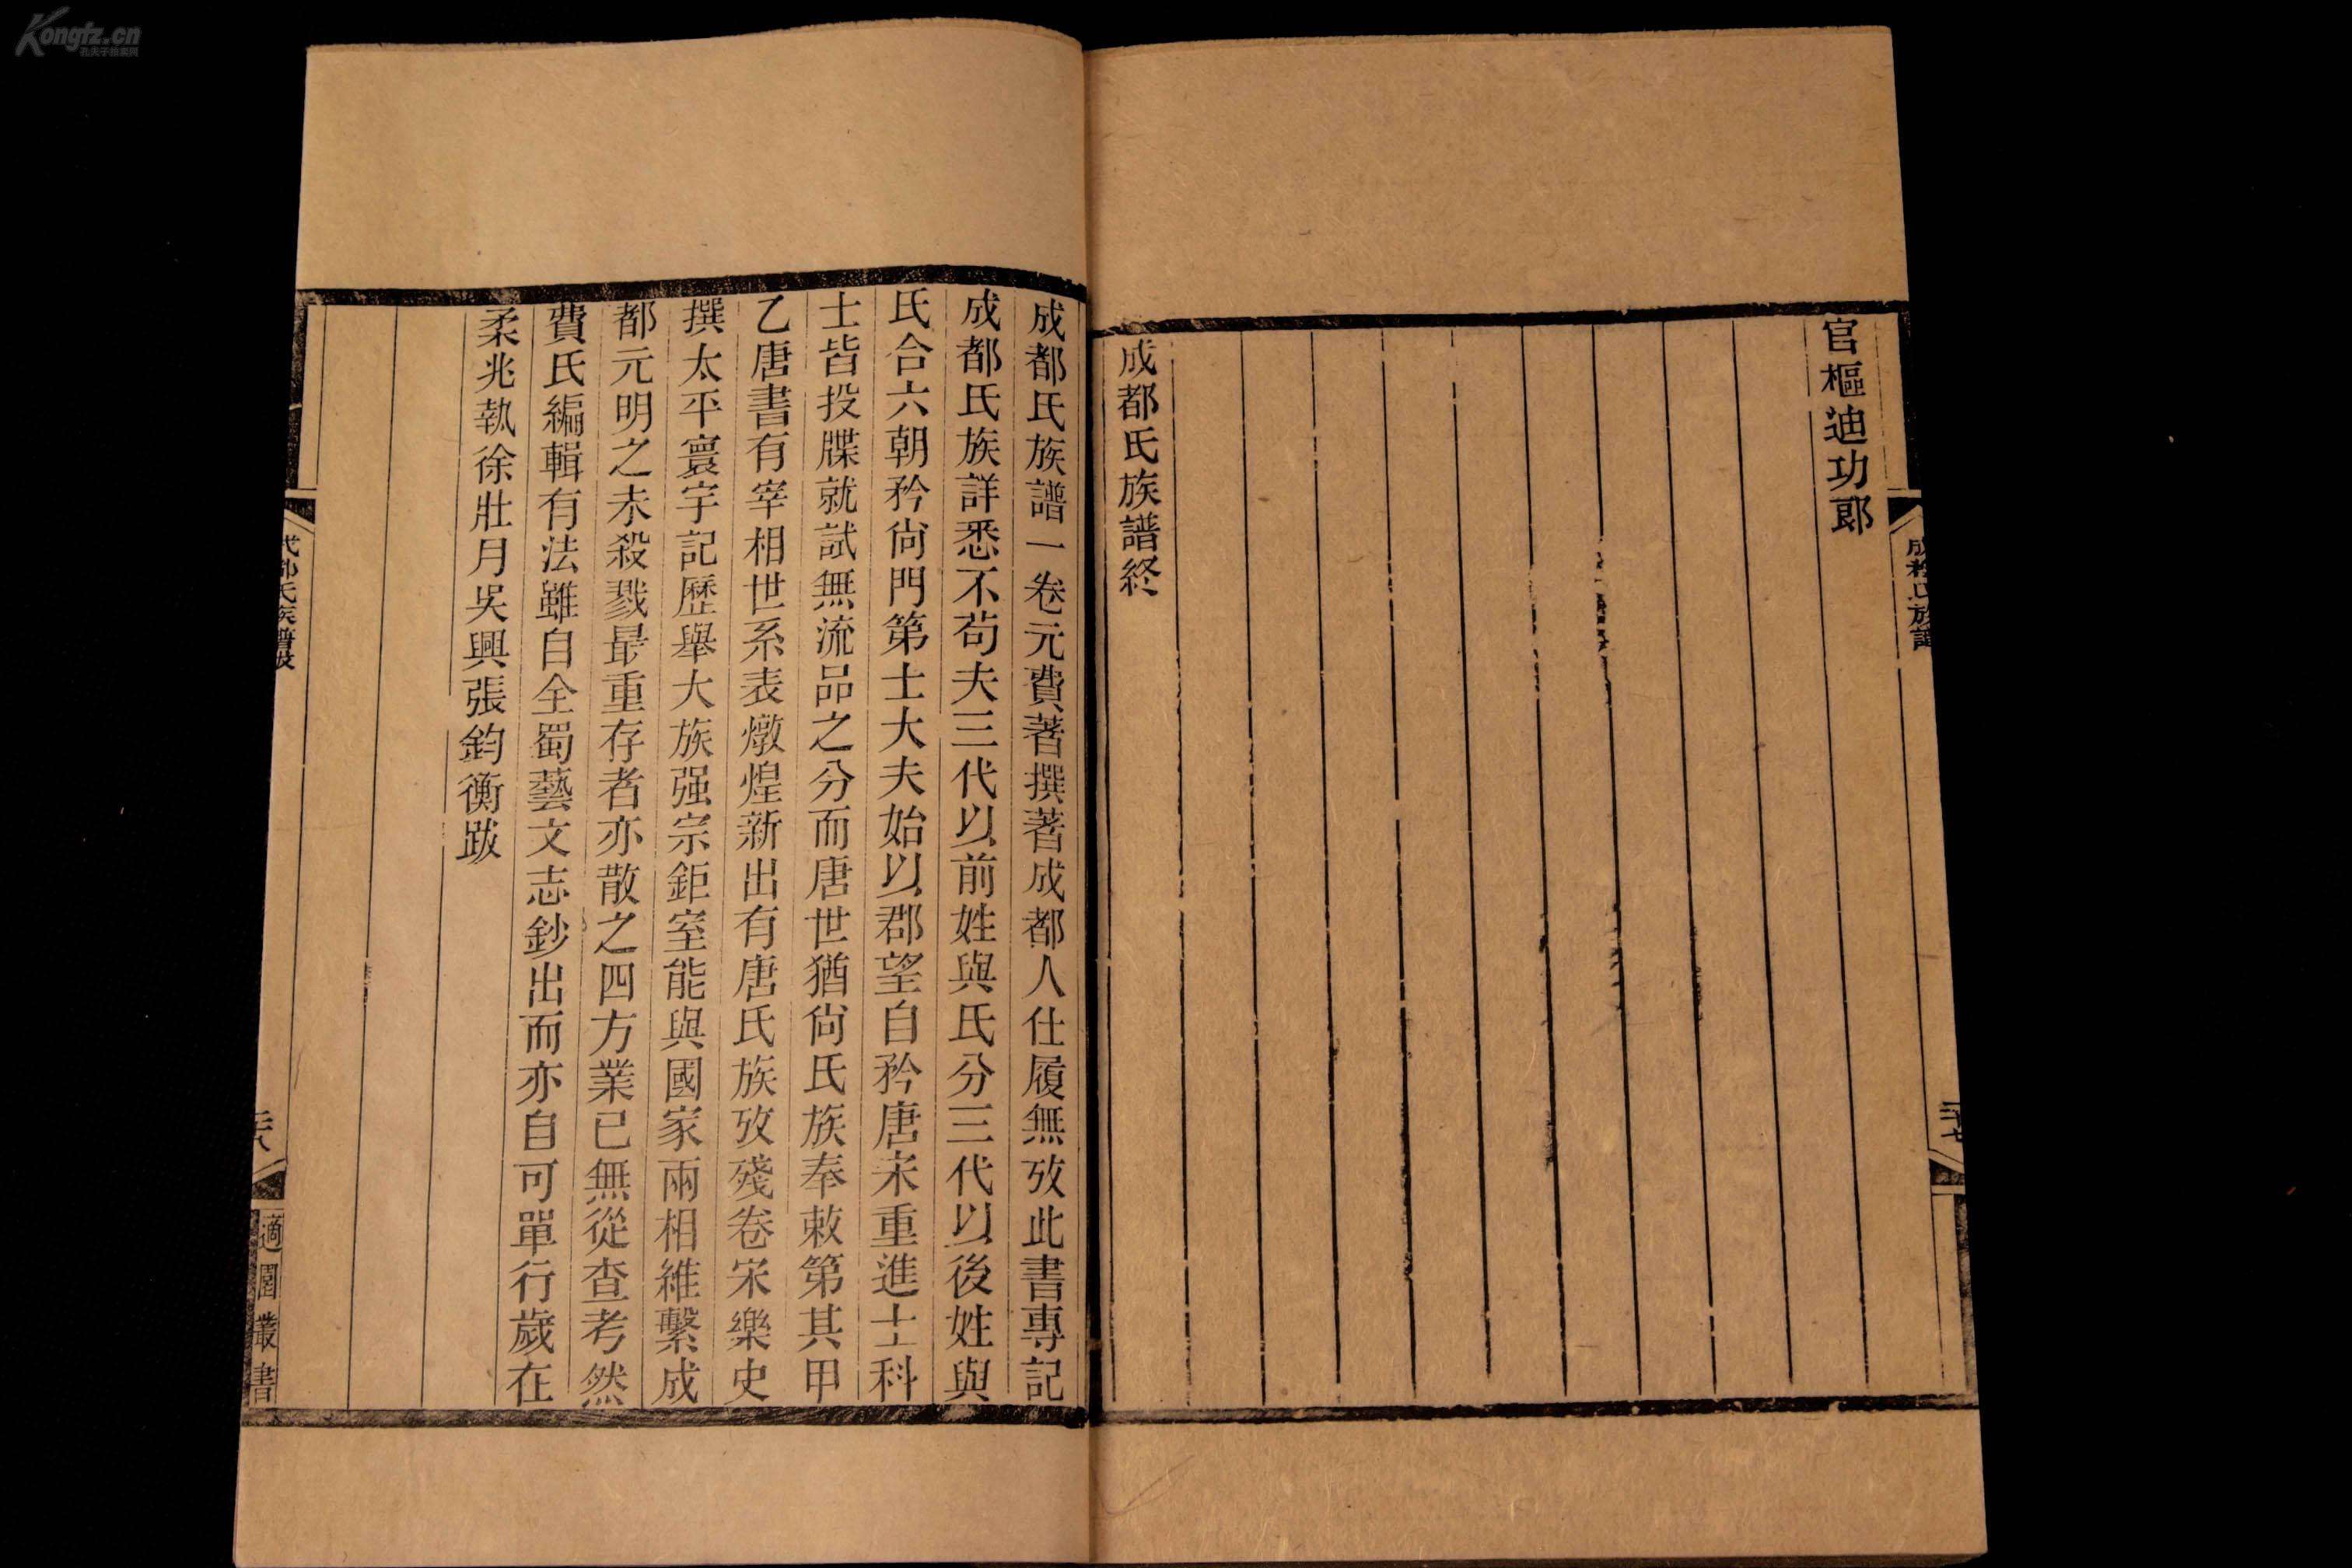 官樞迪功郎
成都氏族譜終
成都氏族譜一卷元費著撰著成都人仕履無攷此書專記
成都氏族詳悉不苟夫三代以前姓與氏分三代以後姓與
氏合六朝矜尙門第士大夫始以郡望自矜唐宋重進士科
士皆投牒就試無流品之分而唐世猶尙氏族奉敕第其甲
乙唐書有宰相世系表燉煌新出有唐氏族攷殘卷宋樂史
撰太平寰宇記歷舉大族强宗鉅室能與國家兩相維繫成
都元明之未殺戮最重存者亦散之四方業已無從查考然
費氏編輯有法雖自全蜀藝文志鈔出而亦自可單行歲在
柔兆執徐壯月吳興張鈞衡跋
成都氏族譜跋
適園叢書
Kongfz.cn